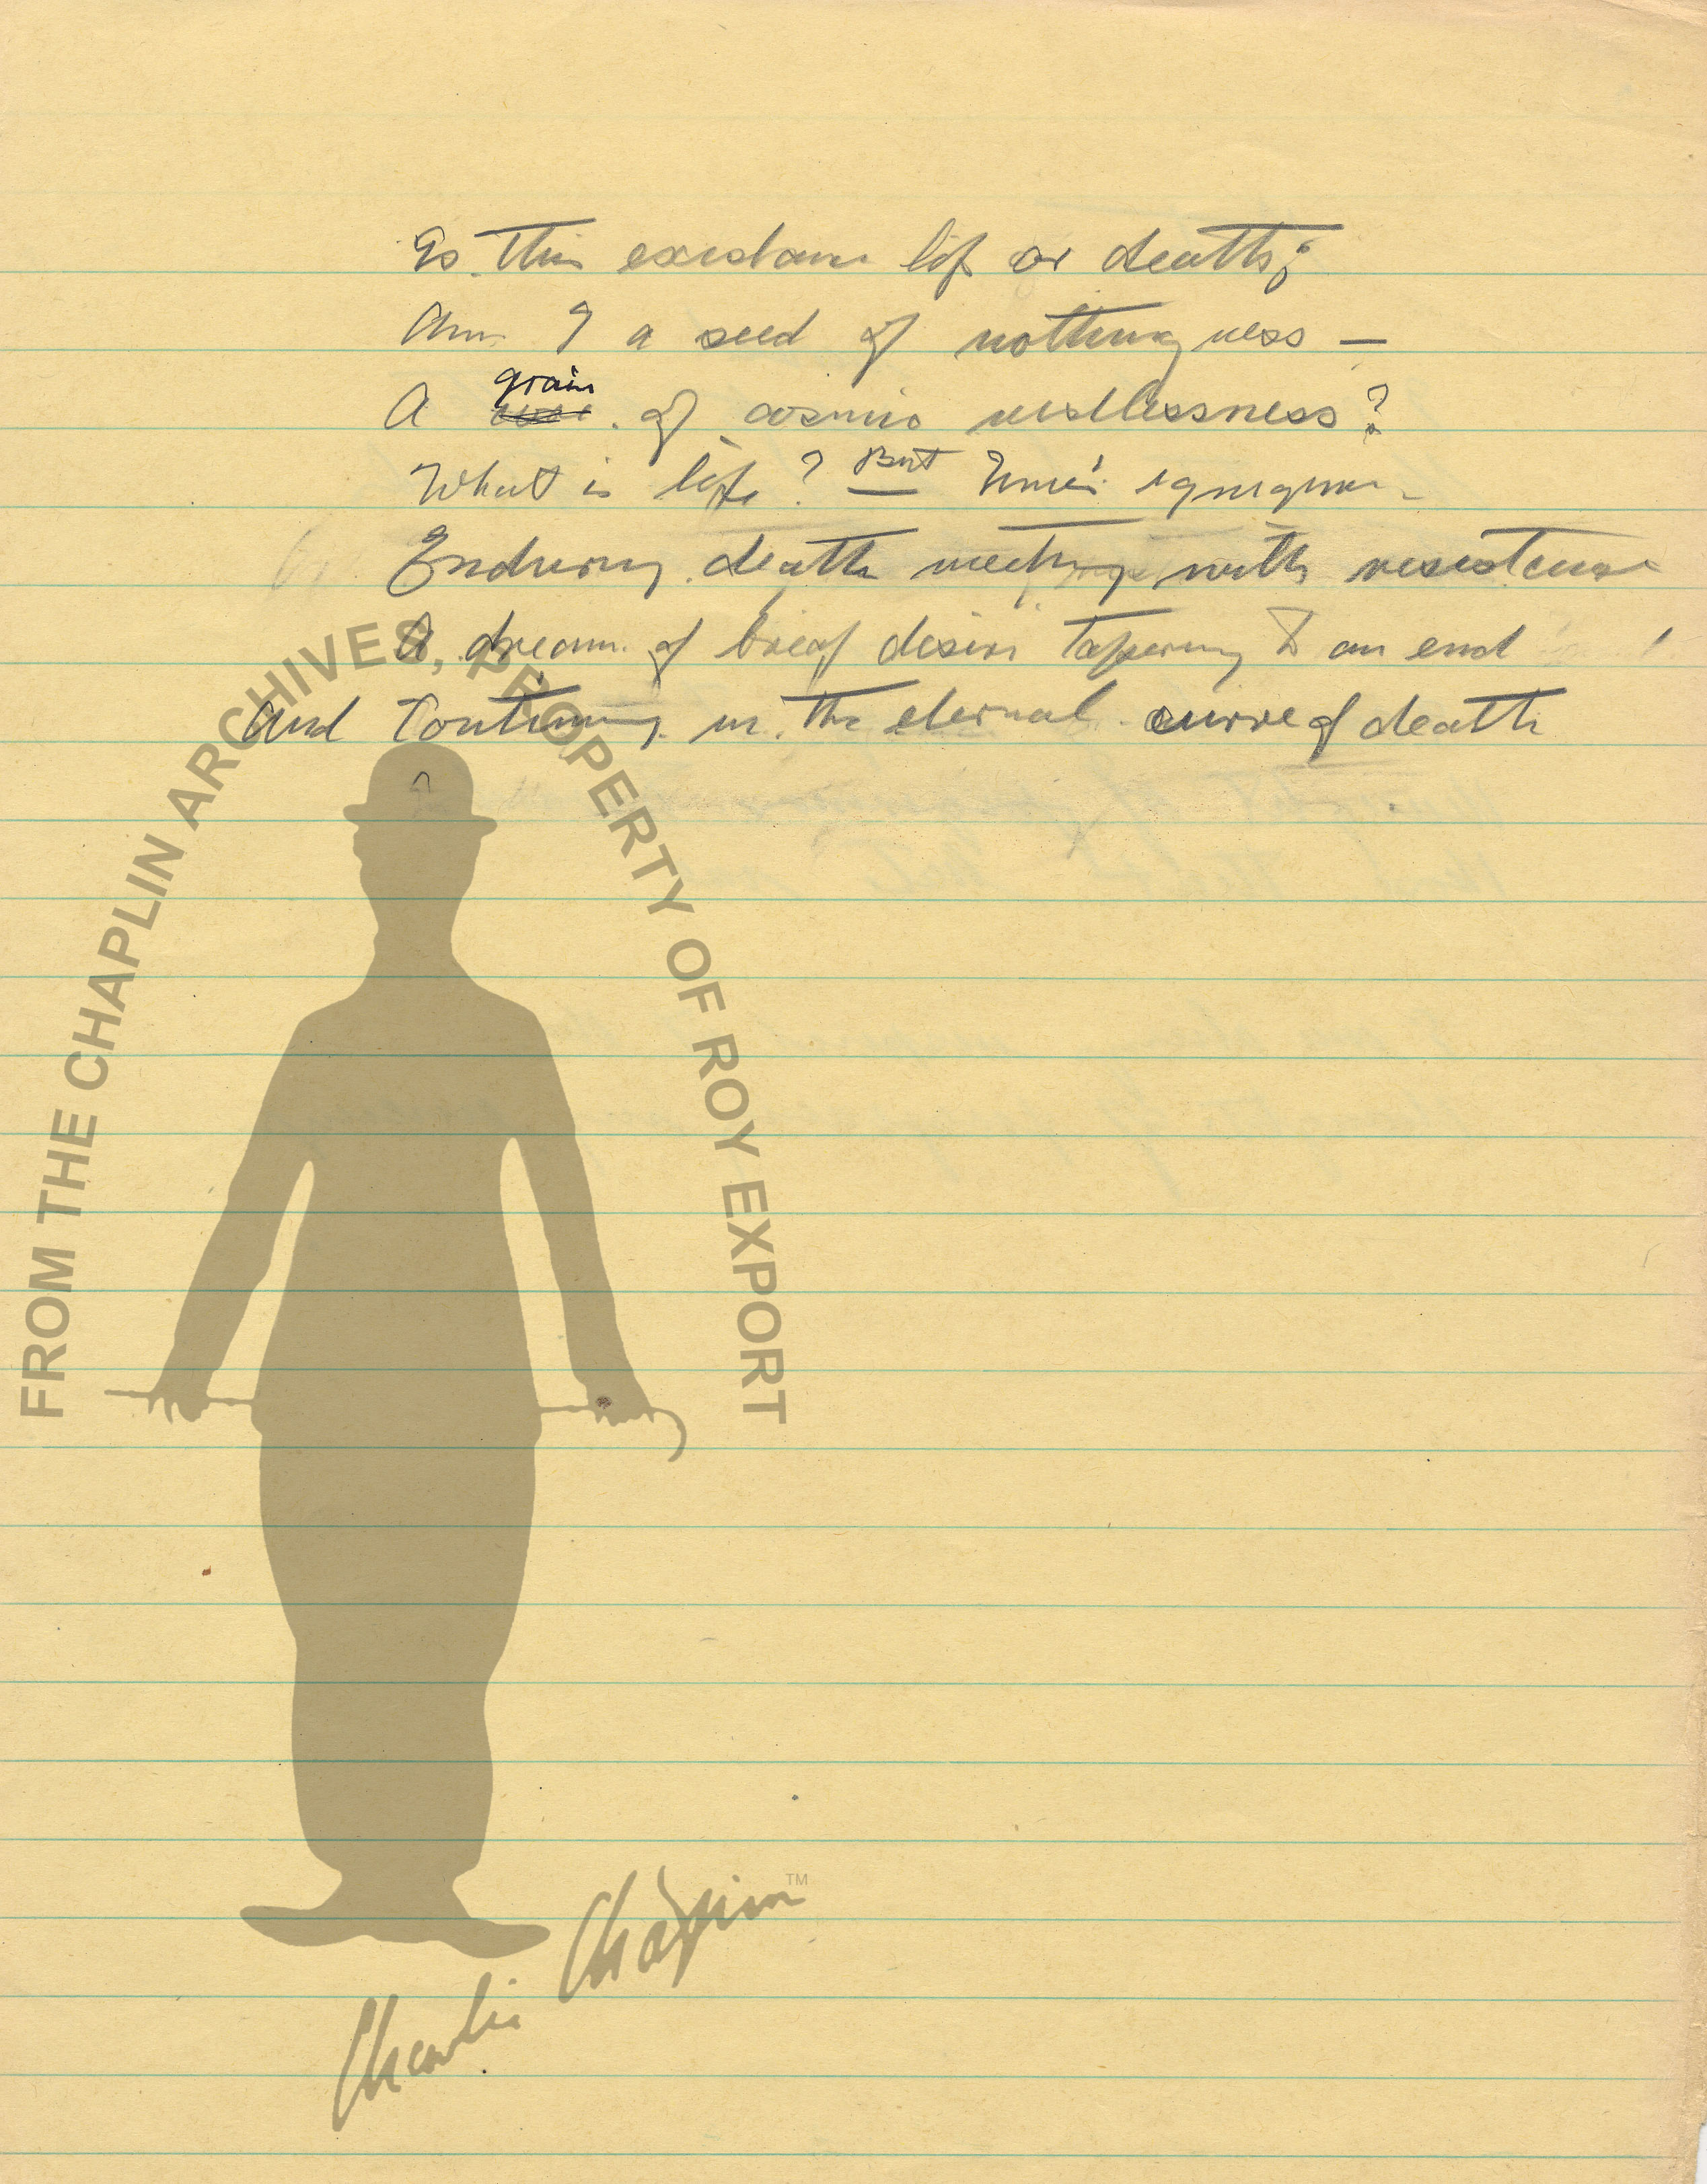 Is this existance life or death;
Am I a seed of nothingness —
A grain of cosmic restlessness?
What is life? But Time's
Enduring death meeting with resistence
A dream of brief desire tapering to an end
And continuing in the eternal curve of death
FROM THE CHAPLIN ARCHIVES, PROPERTY OF ROY EXPORT
Charlie Chaplin™